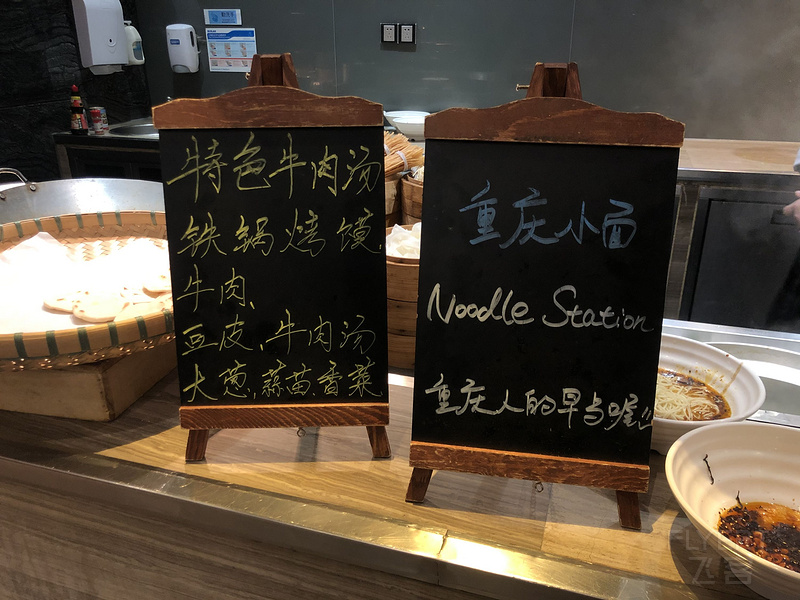 特色牛肉汤
铁锅烤馍
牛肉、
豆皮、牛肉汤
大葱、蒜苗、香菜
重庆小面
Noodle Station
重庆人的早当喔
FLY
飞客